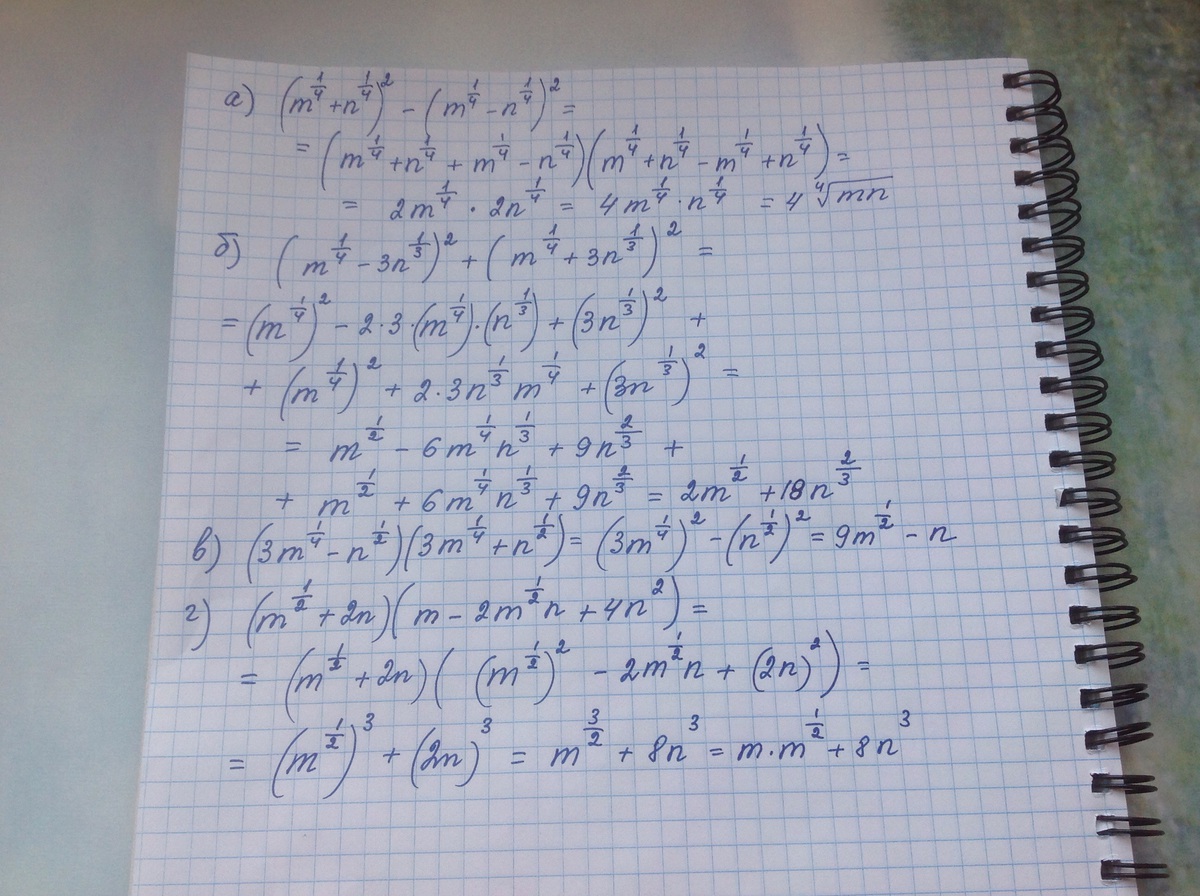 а) (m^{1/4} + n^{1/4})^2 − (m^{1/4} − n^{1/4})^2 =
= (m^{1/4} + n^{1/4} + m^{1/4} − n^{1/4})(m^{1/4} + n^{1/4} − m^{1/4} + n^{1/4}) =
= 2m^{1/4} · 2n^{1/4} = 4m^{1/4} · n^{1/4} = 4 ⁴√mn
б) (m^{1/4} − 3n^{1/3})^2 + (m^{1/4} + 3n^{1/3})^2 =
= (m^{1/4})^2 − 2·3·(m^{1/4})·(n^{1/3}) + (3n^{1/3})^2 +
+ (m^{1/4})^2 + 2·3n^{1/3} m^{1/4} + (3n^{1/3})^2 =
= m^{1/2} − 6m^{1/4} n^{1/3} + 9n^{2/3} +
+ m^{1/2} + 6m^{1/4} n^{1/3} + 9n^{2/3} = 2m^{1/2} + 18n^{2/3}
в) (3m^{1/4} − n^{1/2})(3m^{1/4} + n^{1/2}) = (3m^{1/4})^2 − (n^{1/2})^2 = 9m^{1/2} − n
г) (m^{1/2} + 2n)(m − 2m^{1/2}n + 4n^2) =
= (m^{1/2} + 2n)((m^{1/2})^2 − 2m^{1/2}n + (2n)^2) =
= (m^{1/2})^3 + (2n)^3 = m^{3/2} + 8n^3 = m·m^{1/2} + 8n^3